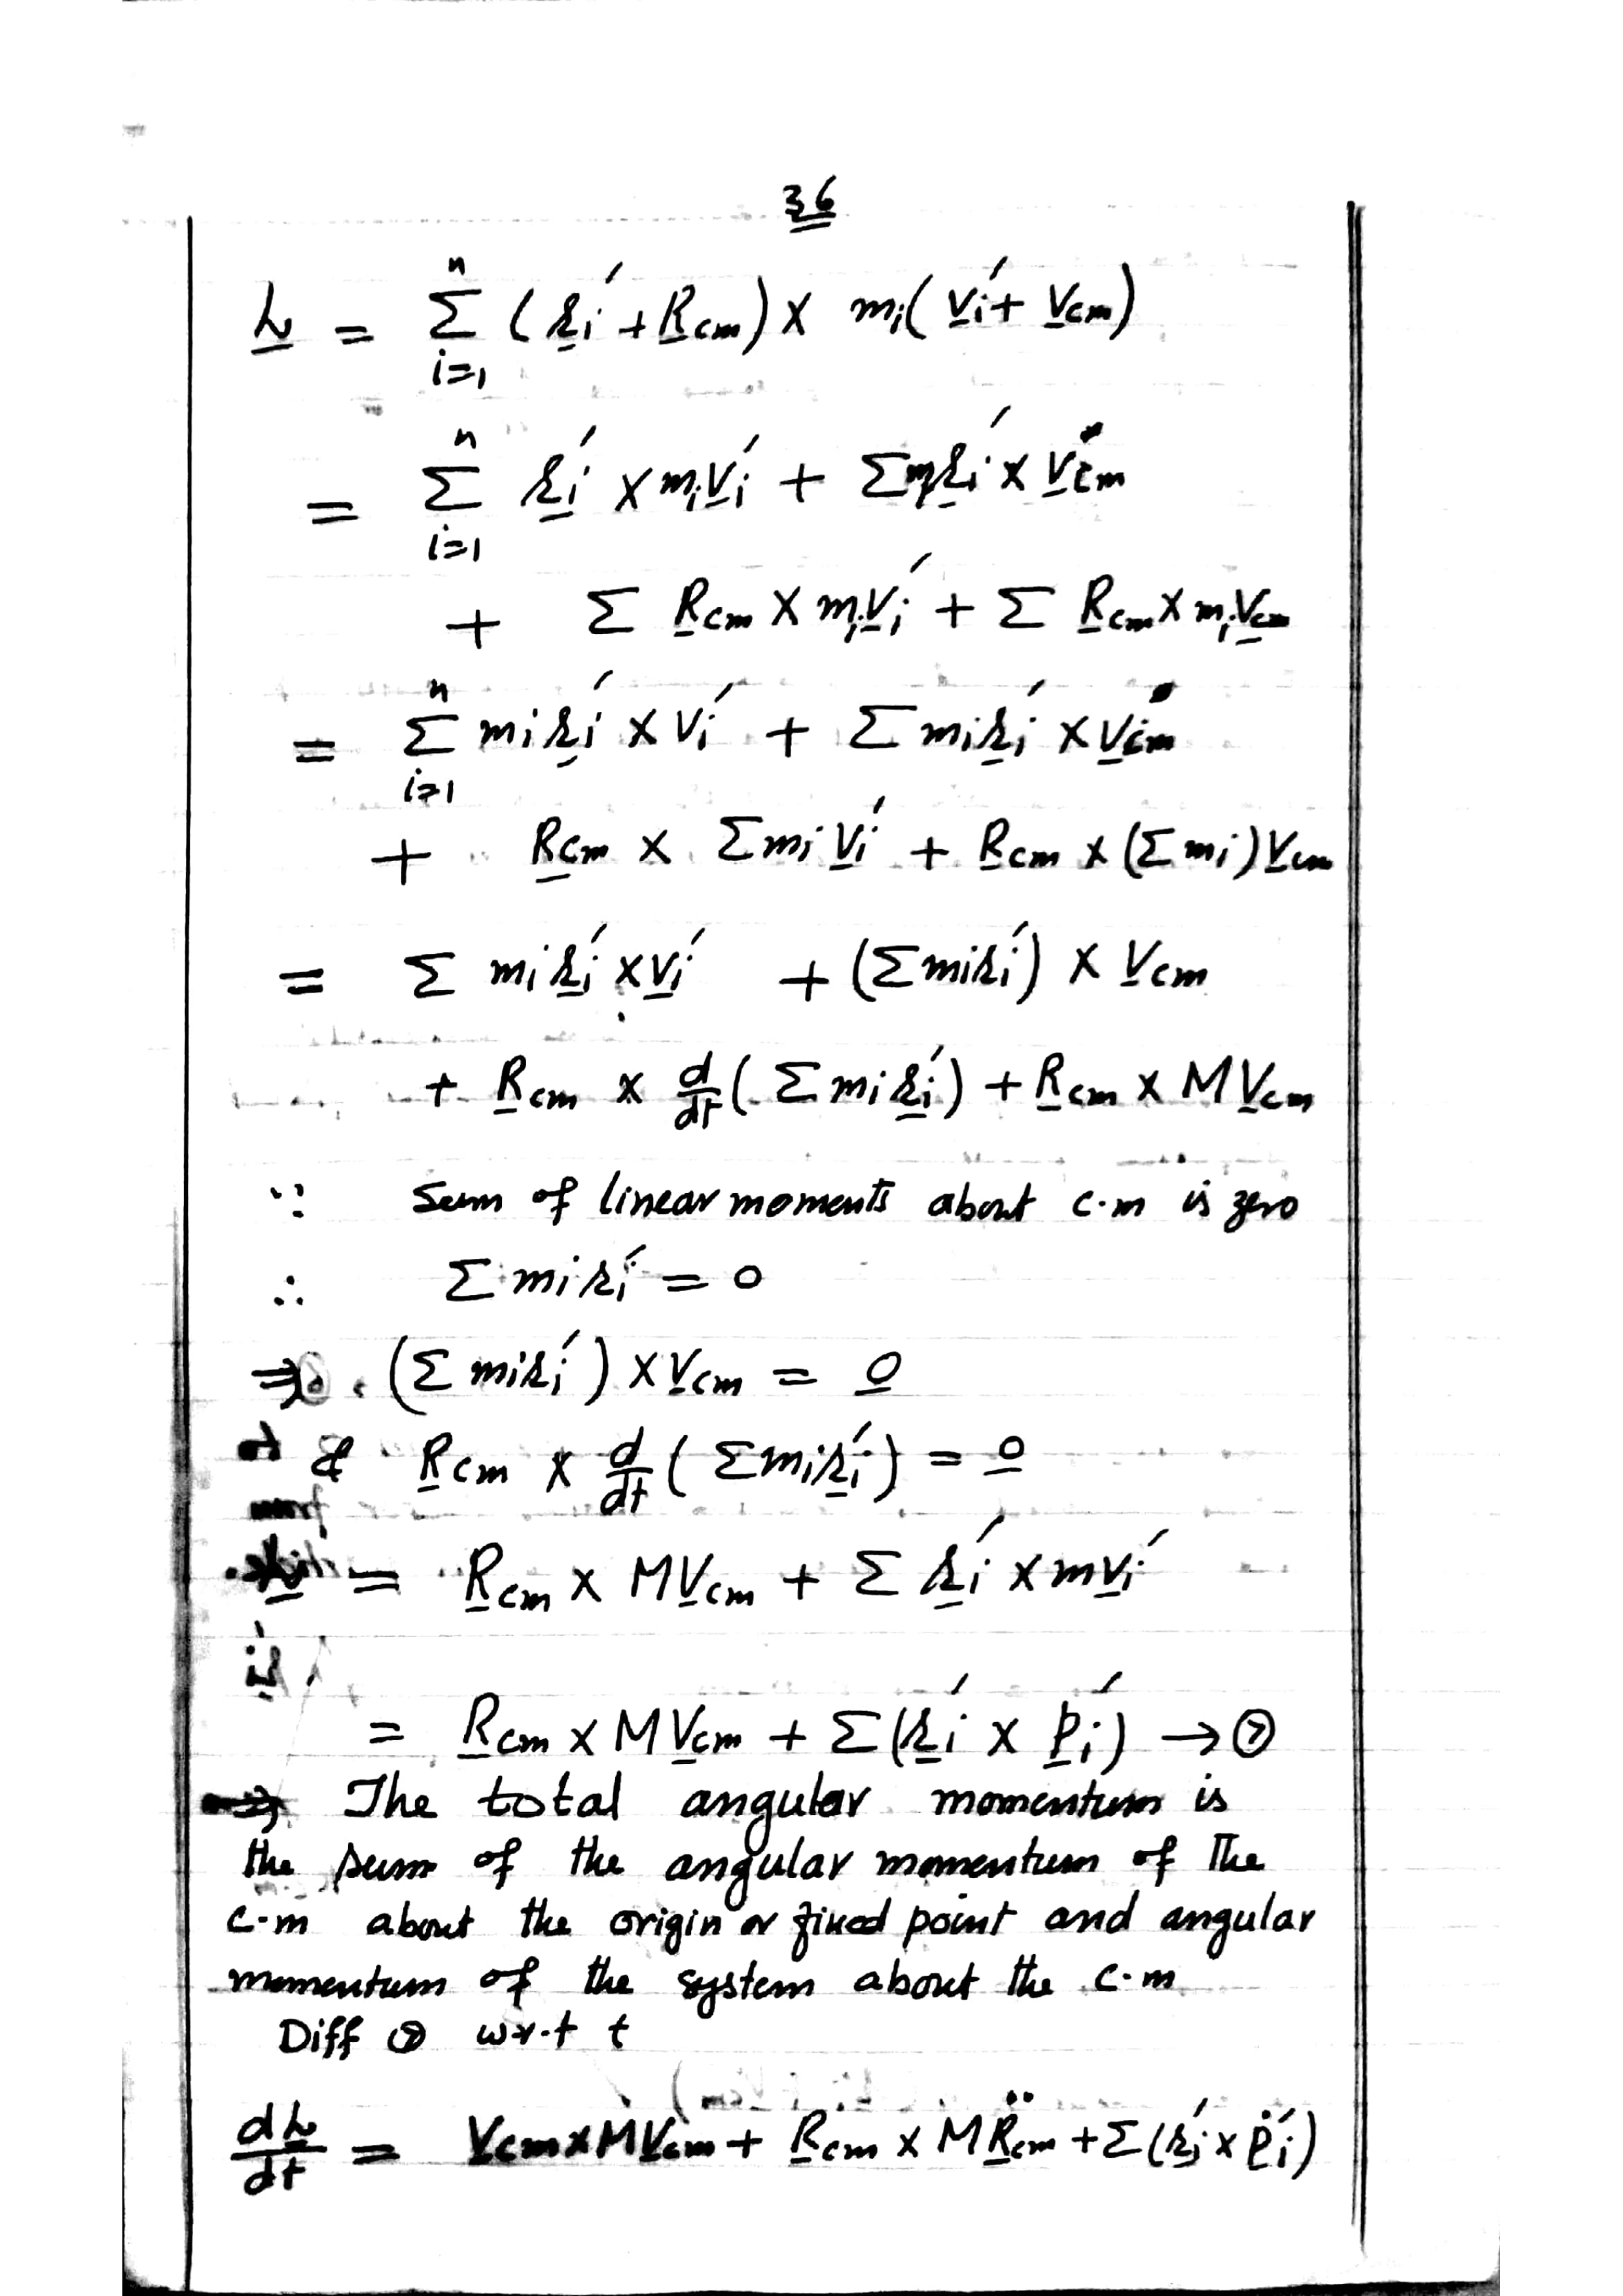 36
L = Σ_{i=1}^{n} (r_i' + R_cm) × m_i (v_i' + V_cm)
= Σ_{i=1}^{n} r_i' × m_i v_i' + Σ m_i r_i' × V_cm
+ Σ R_cm × m_i v_i' + Σ R_cm × m_i V_cm
= Σ_{i=1}^{n} m_i r_i' × v_i' + Σ m_i r_i' × V_cm
+ R_cm × Σ m_i v_i' + R_cm × (Σ m_i) V_cm
= Σ m_i r_i' × v_i' + (Σ m_i r_i') × V_cm
+ R_cm × d/dt (Σ m_i r_i') + R_cm × M V_cm
∵ Sum of linear moments about c.m is zero
∴ Σ m_i r_i' = 0
⇒ (Σ m_i r_i') × V_cm = 0
& R_cm × d/dt (Σ m_i r_i') = 0
= R_cm × M V_cm + Σ r_i' × m v_i'
= R_cm × M V_cm + Σ (r_i' × p_i') → ⑦
⇒ The total angular momentum is
the sum of the angular momentum of The
c.m about the origin or fixed point and angular
momentum of the system about the c.m
Diff ⑦ w.r.t t
dL/dt = V_cm × M V_cm + R_cm × M R̈_cm + Σ (r_i' × ṗ_i')